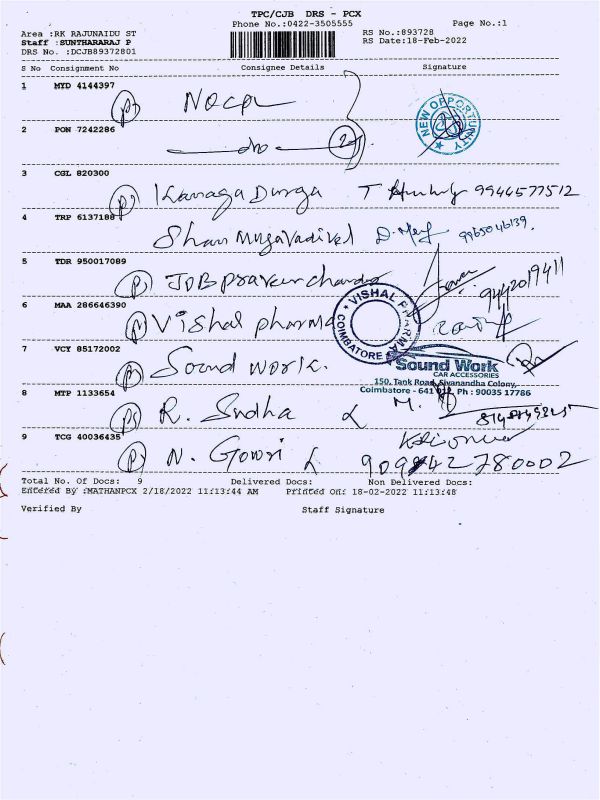 TPC/CJB DRS - PCX
Phone No.:0422-3505555
Page No.:1
Area :RK RAJUNAIDU ST
RS No.:893728
Staff :SUNTHARARAJ P
RS Date:18-Feb-2022
DRS No. :DCJB89372801
S No Consignment No Consignee Details Signature
1 MYD 4144397
NEW OPPORTUNITY
2 PON 7242286
3 CGL 820300
Kanaga Durga 9944577512
4 TRP 6137188
Shan Mugavadivel 9965046139.
5 TDR 950017089
JDB praveen chandra 9442019411
6 MAA 286646390
Vishal pharma
VISHAL PHARMA COIMBATORE
7 VCY 85172002
Sound work.
Sound Work
CAR ACCESSORIES
150, Tank Road, Sivanandha Colony,
Coimbatore - 641 012. Ph : 90035 17786
8 MTP 1133654
R. Sudha
9 TCG 40036435
N. Gowri
Total No. Of Docs: 9 Delivered Docs: Non Delivered Docs:
Entered By :MATHANPCX 2/18/2022 11:13:44 AM Printed On: 18-02-2022 11:13:48
Verified By Staff Signature